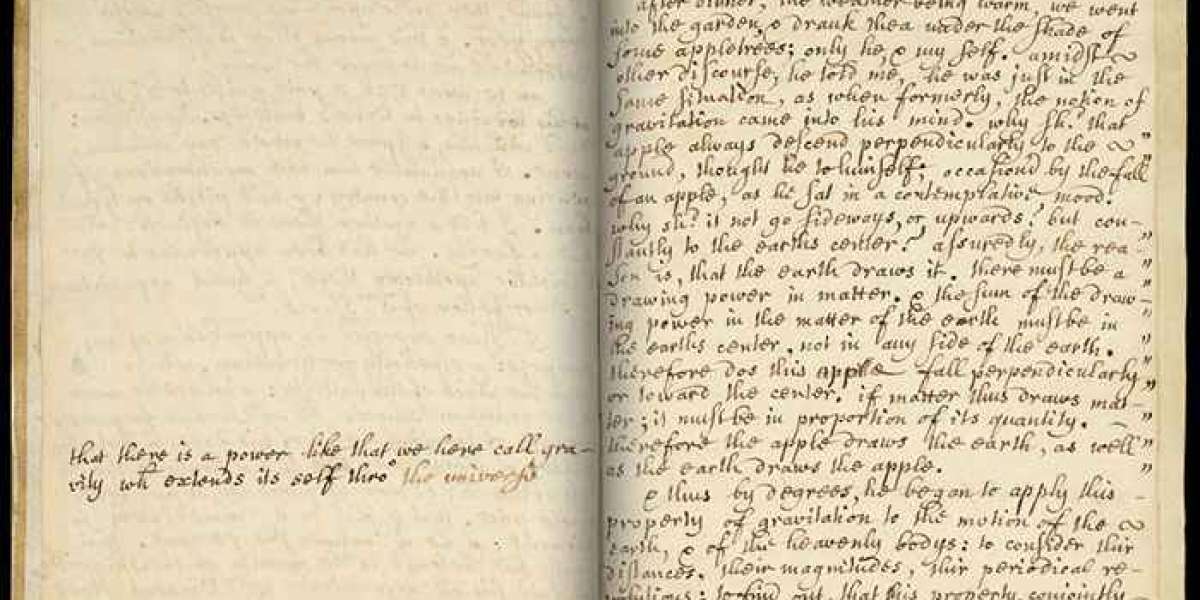 that there is a power like that we here call gra-
vity wh extends its self thro' the universe
after dinner, the weather being warm, we went
into the garden, & drank thea under the shade of
some appletrees; only he, & my self. amidst
other discourse, he told me, he was just in the
same situation, as when formerly, the notion of
gravitation came into his mind. why shd that
apple always descend perpendicularly to the
ground, thought he to himself; occasion'd by the fall
of an apple, as he sat in a contemplative mood.
why shd it not go sideways, or upwards? but con-
stantly to the earths center? assuredly, the rea-
son is, that the earth draws it. there must be a
drawing power in matter. & the sum of the draw-
ing power in the matter of the earth must be in
the earths center, not in any side of the earth.
therefore dos this apple fall perpendicularly
or toward the center. if matter thus draws mat-
ter; it must be in proportion of its quantity.
therefore the apple draws the earth, as well
as the earth draws the apple.
& thus by degrees, he began to apply this
property of gravitation to the motion of the
earth, & of the heavenly bodys: to consider thir
distances, their magnitudes, thir periodical re-
volutions: to find out, that this property, conjointly